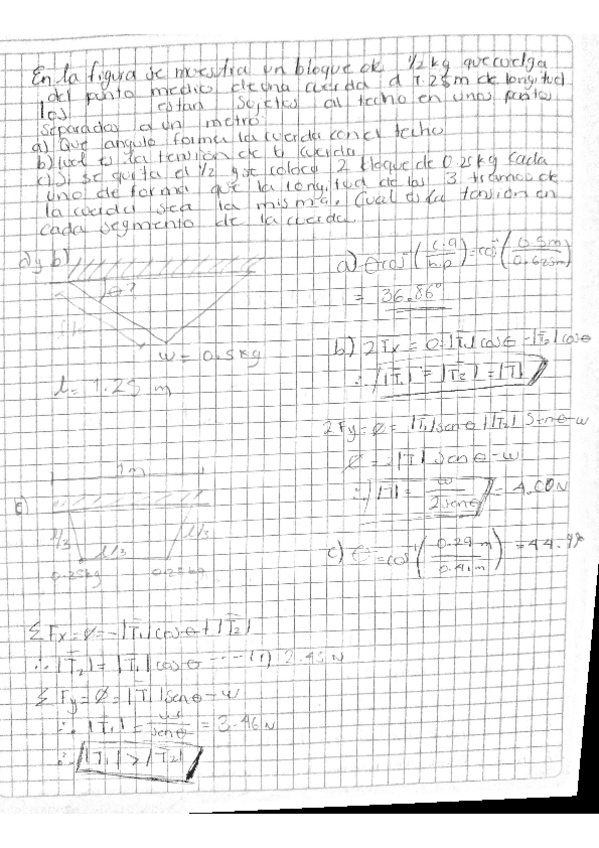 En la figura se muestra un bloque de 1/2 kg que cuelga
del punto medio de una cuerda d 1.25m de longitud
los estan sujetos al techo en unos puntos
separados a un metro
a) Que angulo forma la cuerda con el techo
b) cual es la tension de la cuerda
c) si se quita el 1/2 y se coloca 2 bloque de 0.25kg cada
uno de forma que la longitud de los 3 tramos de
la cuerda sea la misma. Cual es la tension en
cada segmento de la cuerda
a) y b)
θ?
w = 0.5kg
l = 1.25 m
a) θ cos⁻¹ (c.a/hip) = cos⁻¹ (0.5m/0.625m)
= 36.86°
b) ΣFx = 0 = |T₁| cos θ - |T₂| cos θ
∴ |T₁| = |T₂| = |T|
ΣFy = ø = |T₁| sen θ |T₂| sen θ - w
ø = |T| sen θ - w
∴ |T| = w/2senθ = 4.00N
1m
c)
l/3 l/3 l/3
0.25kg 0.25kg
c) θ = cos⁻¹ (0.29m/0.41m) = 44.98
ΣFx = ø = -|T₁| cos θ + |T₂|
∴ |T₂| = |T₁| cos θ ---- (1) 2.45N
ΣFy = ø = |T₁| sen θ - w
∴ |T₁| = /senθ = 3.46N
∴ |T₁| > |T₂|